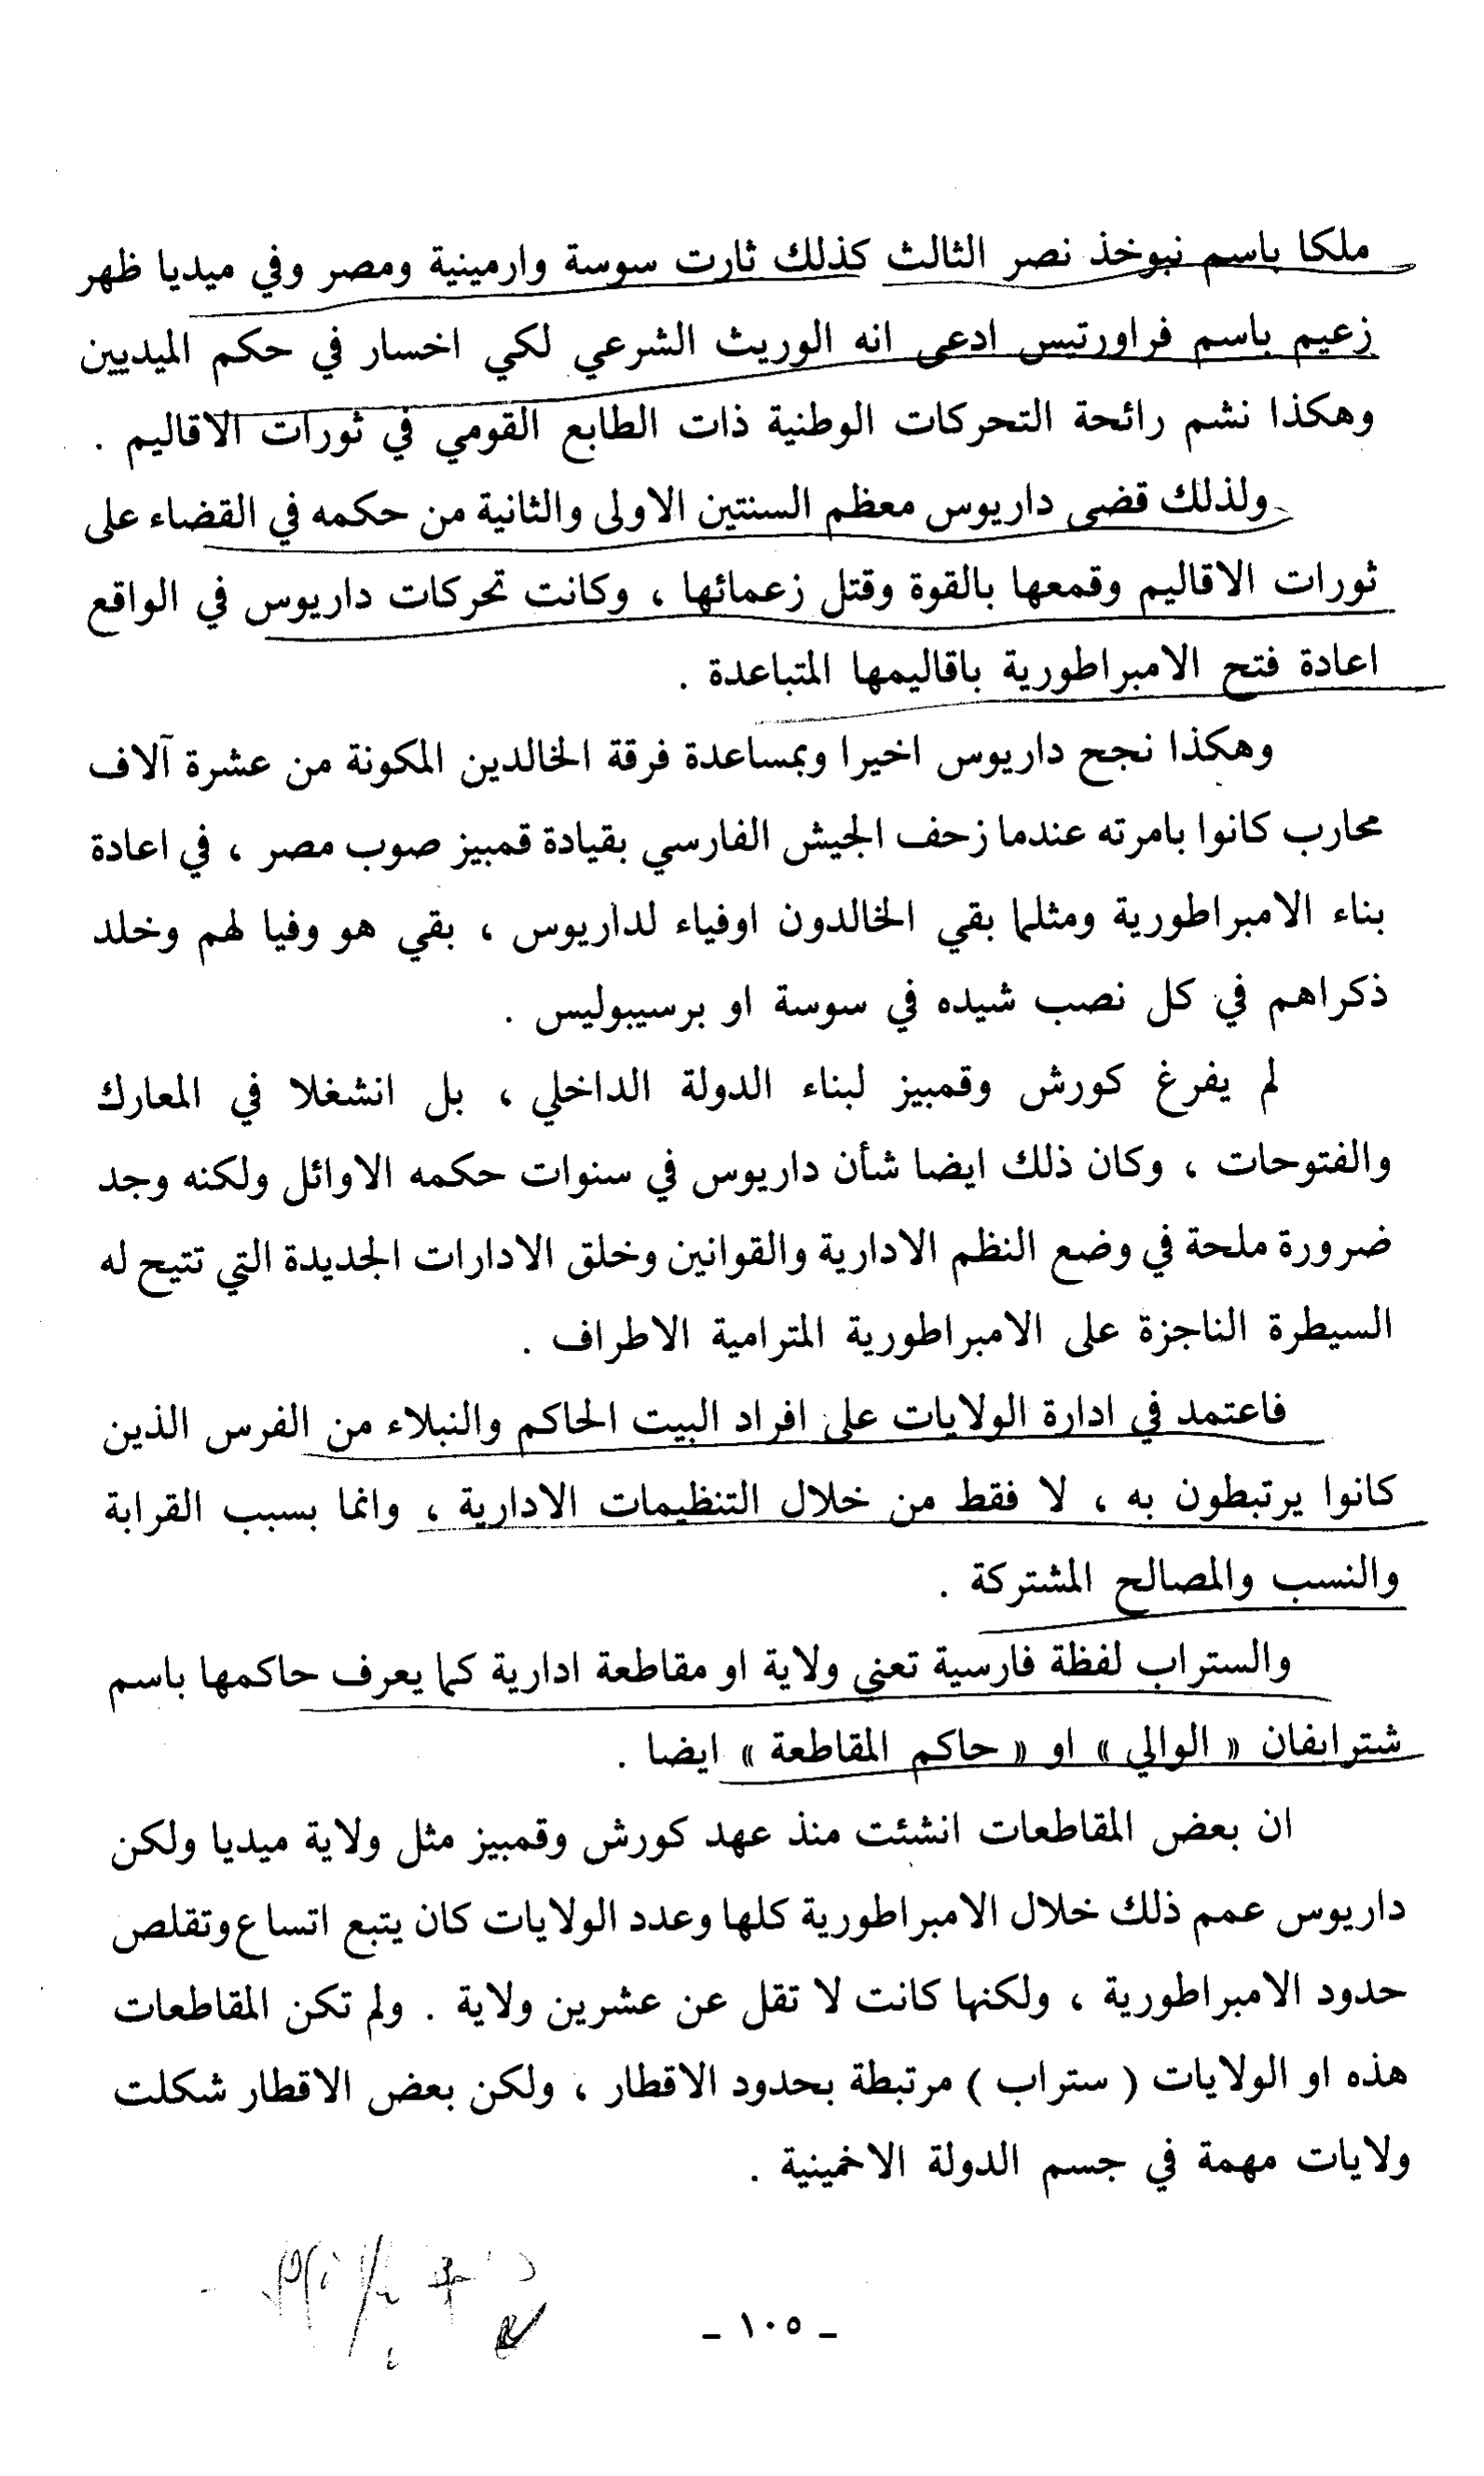 ملكا باسم نبوخذ نصر الثالث كذلك ثارت سوسة وارمينية ومصر وفي ميديا ظهر
زعيم باسم فراورتيس ادعى انه الوريث الشرعي لكي اخسار في حكم الميديين
وهكذا نشم رائحة التحركات الوطنية ذات الطابع القومي في ثورات الاقاليم .
ولذلك قضى داريوس معظم السنتين الاولى والثانية من حكمه في القضاء على
ثورات الاقاليم وقمعها بالقوة وقتل زعمائها ، وكانت تحركات داريوس في الواقع
اعادة فتح الامبراطورية باقاليمها المتباعدة .
وهكذا نجح داريوس اخيرا وبمساعدة فرقة الخالدين المكونة من عشرة آلاف
محارب كانوا بامرته عندما زحف الجيش الفارسي بقيادة قمبيز صوب مصر ، في اعادة
بناء الامبراطورية ومثلما بقي الخالدون اوفياء لداريوس ، بقي هو وفيا لهم وخلد
ذكراهم في كل نصب شيده في سوسة او برسيبوليس .
لم يفرغ كورش وقمبيز لبناء الدولة الداخلي ، بل انشغلا في المعارك
والفتوحات ، وكان ذلك ايضا شأن داريوس في سنوات حكمه الاوائل ولكنه وجد
ضرورة ملحة في وضع النظم الادارية والقوانين وخلق الادارات الجديدة التي تتيح له
السيطرة الناجزة على الامبراطورية المترامية الاطراف .
فاعتمد في ادارة الولايات على افراد البيت الحاكم والنبلاء من الفرس الذين
كانوا يرتبطون به ، لا فقط من خلال التنظيمات الادارية ، وانما بسبب القرابة
والنسب والمصالح المشتركة .
والستراب لفظة فارسية تعني ولاية او مقاطعة ادارية كما يعرف حاكمها باسم
شترابفان « الوالي » او « حاكم المقاطعة » ايضا .
ان بعض المقاطعات انشئت منذ عهد كورش وقمبيز مثل ولاية ميديا ولكن
داريوس عمم ذلك خلال الامبراطورية كلها وعدد الولايات كان يتبع اتساع وتقلص
حدود الامبراطورية ، ولكنها كانت لا تقل عن عشرين ولاية . ولم تكن المقاطعات
هذه او الولايات ( ستراب ) مرتبطة بحدود الاقطار ، ولكن بعض الاقطار شكلت
ولايات مهمة في جسم الدولة الاخمينية .
– ١٠٥ –